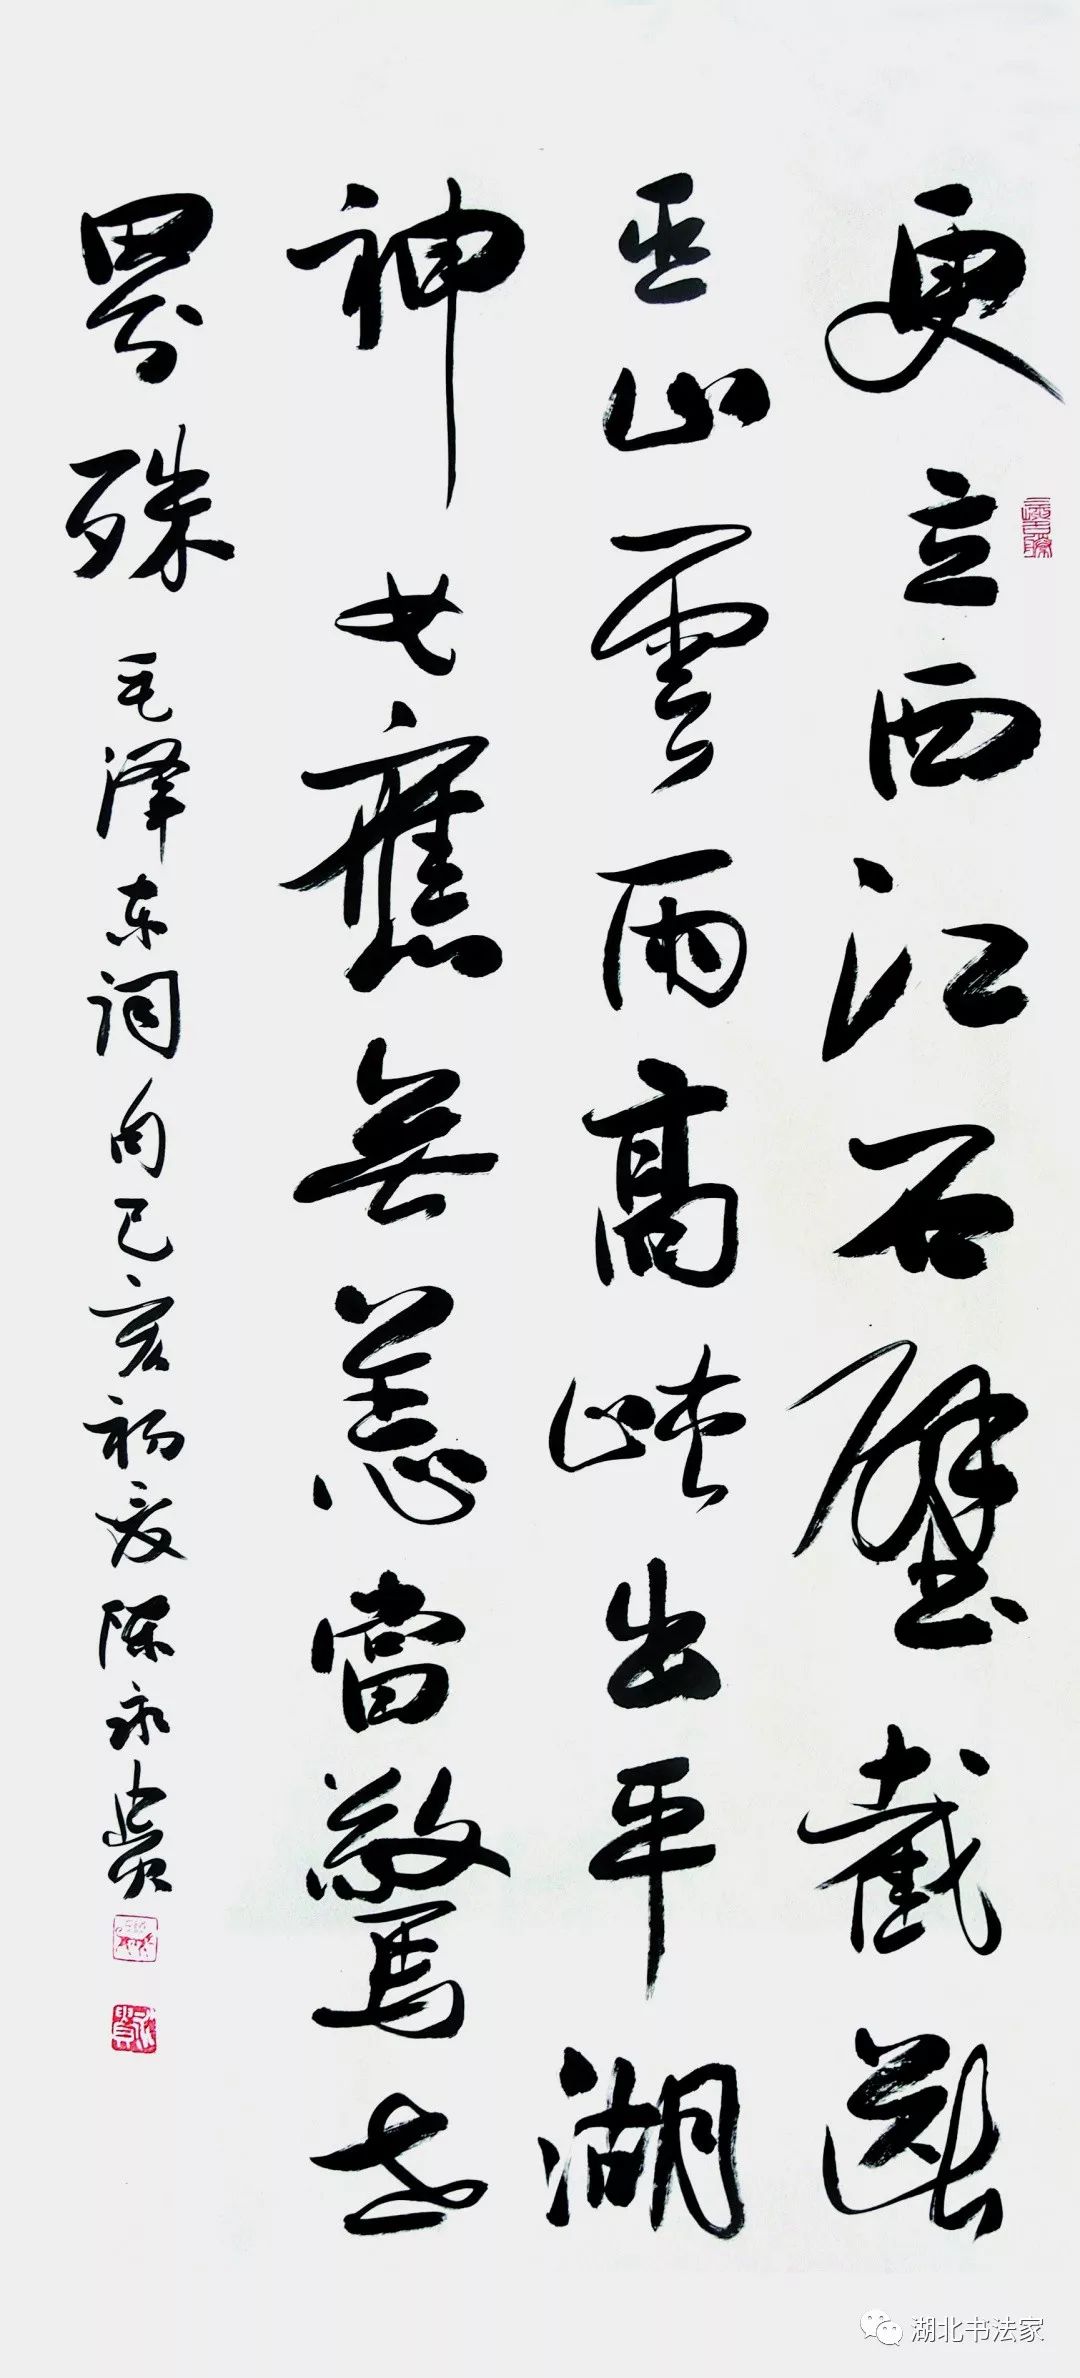 更立西江石壁截斷
巫山雲雨高峽出平湖
神女應無恙當驚世
界殊
毛泽东词句己亥初夏陈永贵
湖北书法家